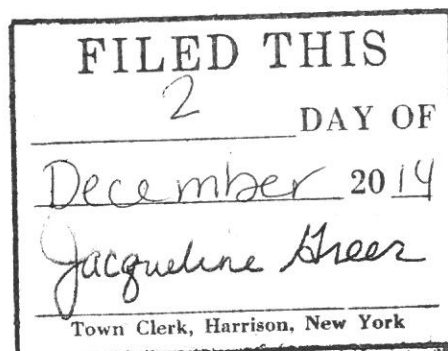 FILED THIS
2
DAY OF
December 2014
Jacqueline Greer
Town Clerk, Harrison, New York